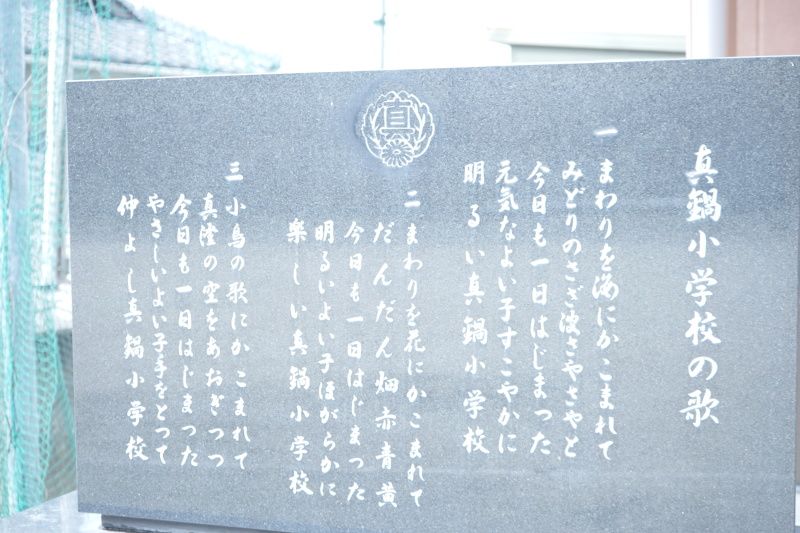 真
真鍋小学校の歌
一 まわりを海にかこまれて
みどりのさざ波さやさやと
今日も一日はじまった
元気なよい子すこやかに
明るい真鍋小学校
二 まわりを花にかこまれて
だんだん畑赤青黄
今日も一日はじまった
明るいよい子ほがらかに
楽しい真鍋小学校
三 小鳥の歌にかこまれて
真澄の空をあおぎつつ
今日も一日はじまった
やさしいよい子手をとって
仲よし真鍋小学校